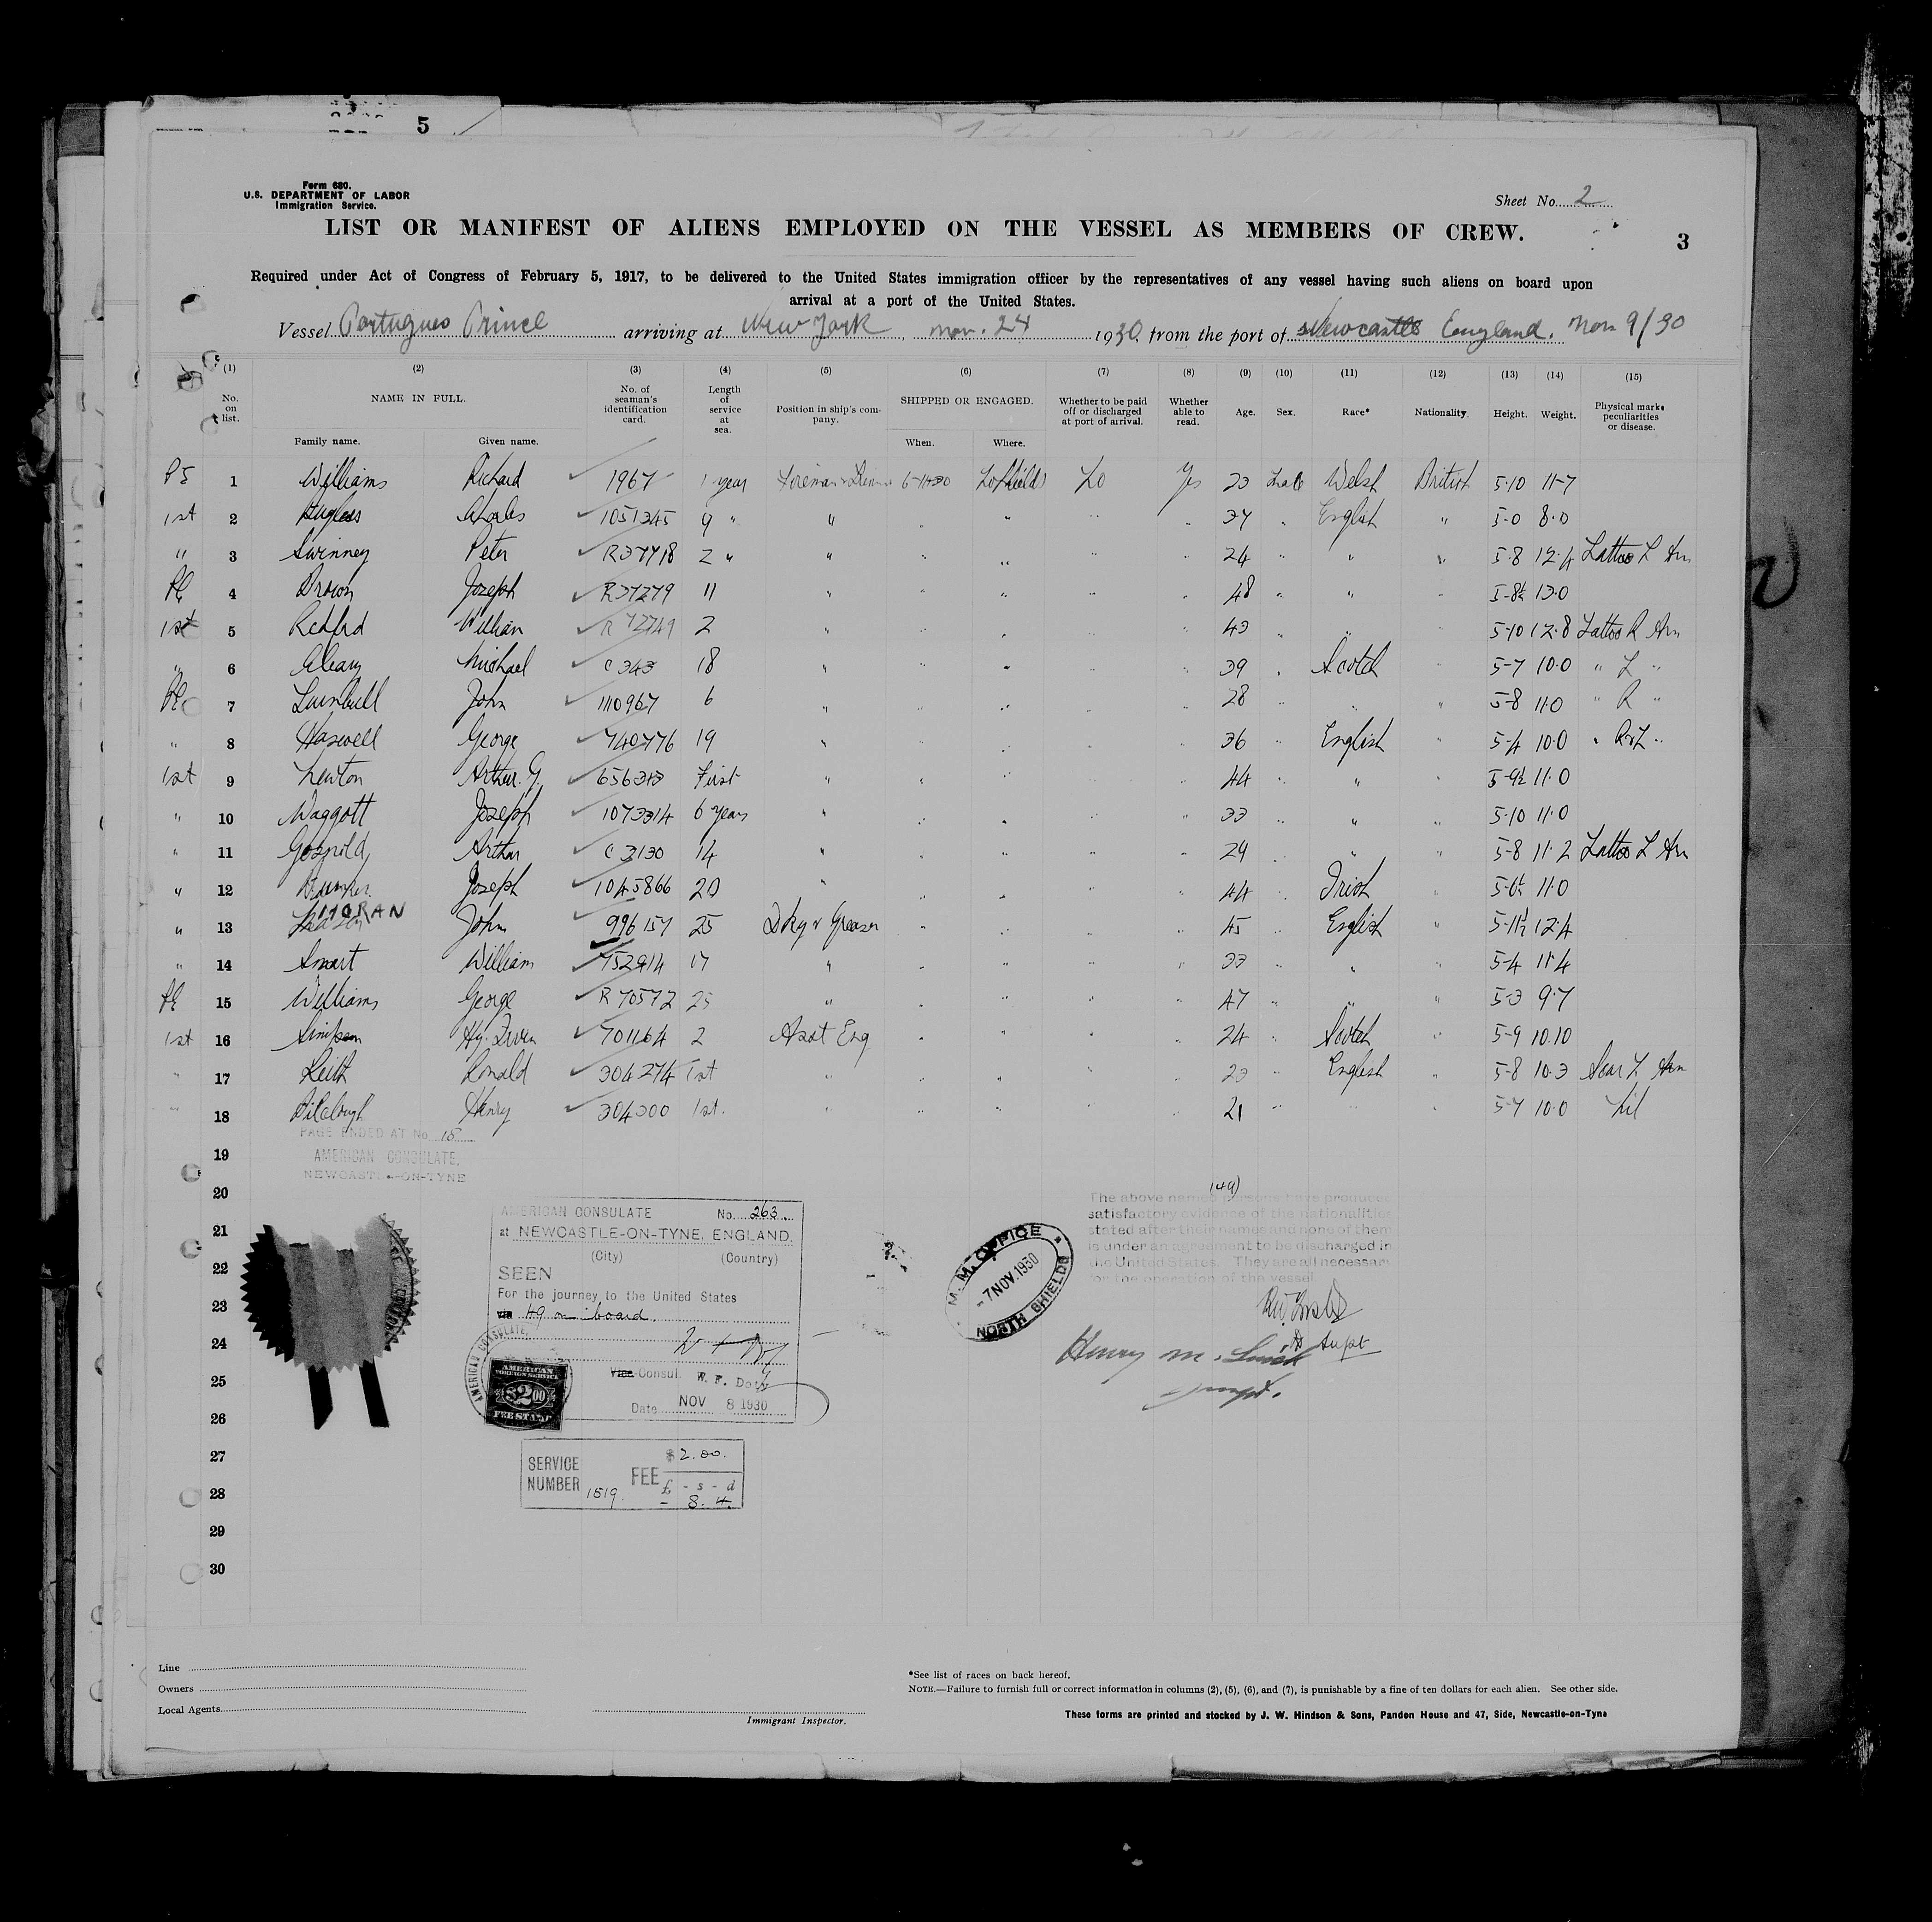 5
Form 680.
U.S. DEPARTMENT OF LABOR
Immigration Service.
Sheet No. 2
LIST OR MANIFEST OF ALIENS EMPLOYED ON THE VESSEL AS MEMBERS OF CREW.
3
Required under Act of Congress of February 5, 1917, to be delivered to the United States immigration officer by the representatives of any vessel having such aliens on board upon
arrival at a port of the United States.
Vessel Portugues Prince arriving at New York, Nov. 24 1930, from the port of Newcastle England. Nov 9/30
(1) (2) (3) (4) (5) (6) (7) (8) (9) (10) (11) (12) (13) (14) (15)
No. on list. NAME IN FULL. No. of seaman's identification card. Length of service at sea. Position in ship's company. SHIPPED OR ENGAGED. Whether to be paid off or discharged at port of arrival. Whether able to read. Age. Sex. Race* Nationality. Height. Weight. Physical marks peculiarities or disease.
Family name. Given name. When. Where.
1 Williams Richard 1967 1 year 6-11-30 Yes 23 Welsh British 5-10 11-7
1st 2 Charles 1051345 9 " " " " 37 " English " 5-0 8-0
" 3 Swinney Peter R37718 2 " " " " 24 " " " 5-8 12-4 Tattoo L Arm
4 Brown Joseph R37279 11 " " " 48 " " " 5-8½ 13-0
1st 5 Redford William R 72749 2 " " 43 " " " 5-10 12-8 Tattoo R Arm
" 6 Cleary Michael C 343 18 " " 39 " Scotch " 5-7 10-0 " L "
7 Turnbull John 1110967 6 " " 28 " " " 5-8 11-0 " R "
" 8 Haswell George 740776 19 " " 36 " English " 5-4 10-0 " R & L "
1st 9 Newton Arthur G. 656343 First " " 44 " " " 5-9½ 11-0
" 10 Waggott Joseph 1073314 6 years " " 33 " " " 5-10 11-0
" 11 Arthur C 3130 14 " " 29 " " " 5-8 11-2 Tattoo L Arm
" 12 Joseph 1045866 20 " " 44 " Irish " 11-0
" 13 MORAN John 996157 25 Dky & Greaser " " 45 " English " 5-11½ 12-4
" 14 Smart William 752914 17 " " " 33 " " " 5-4 11-4
15 Williams George R 70572 25 " " " 47 " " " 5-3 9-7
1st 16 Simpson 701164 2 Asst Eng " " 24 " Scotch " 5-9 10-10
" 17 Keith Ronald 304274 1st " " " 23 " English " 5-8 10-3 Scar L Arm
" 18 Henry 304300 1st. " " " 21 " " " 5-7 10-0 Nil
PAGE ENDED AT No. 18
AMERICAN CONSULATE,
NEWCASTLE-ON-TYNE
19
20
21
22
23
24
25
26
27
28
29
30
AMERICAN CONSULATE No. 263
at NEWCASTLE-ON-TYNE, ENGLAND.
(City) (Country)
SEEN
For the journey to the United States
via 49 on board.
Vice-Consul. W. F. Doty
Date NOV 8 1930
AMERICAN CONSULATE,
AMERICAN
FOREIGN SERVICE
$2.00
FEE STAMP
SERVICE NUMBER 1519 FEE $2.00.
£ - s - d
- 8. 4.
M. M. OFFICE
-7 NOV. 1930
NORTH SHIELDS
(49)
The above named persons have produced
satisfactory evidence of the nationalities
stated after their names and none of them
is under an agreement to be discharged in
the United States. They are all necessary
for the operation of the vessel.
Supt
Henry M.
Line
Owners
Local Agents
Immigrant Inspector.
*See list of races on back hereof.
NOTE.—Failure to furnish full or correct information in columns (2), (5), (6), and (7), is punishable by a fine of ten dollars for each alien. See other side.
These forms are printed and stocked by J. W. Hindson & Sons, Pandon House and 47, Side, Newcastle-on-Tyne